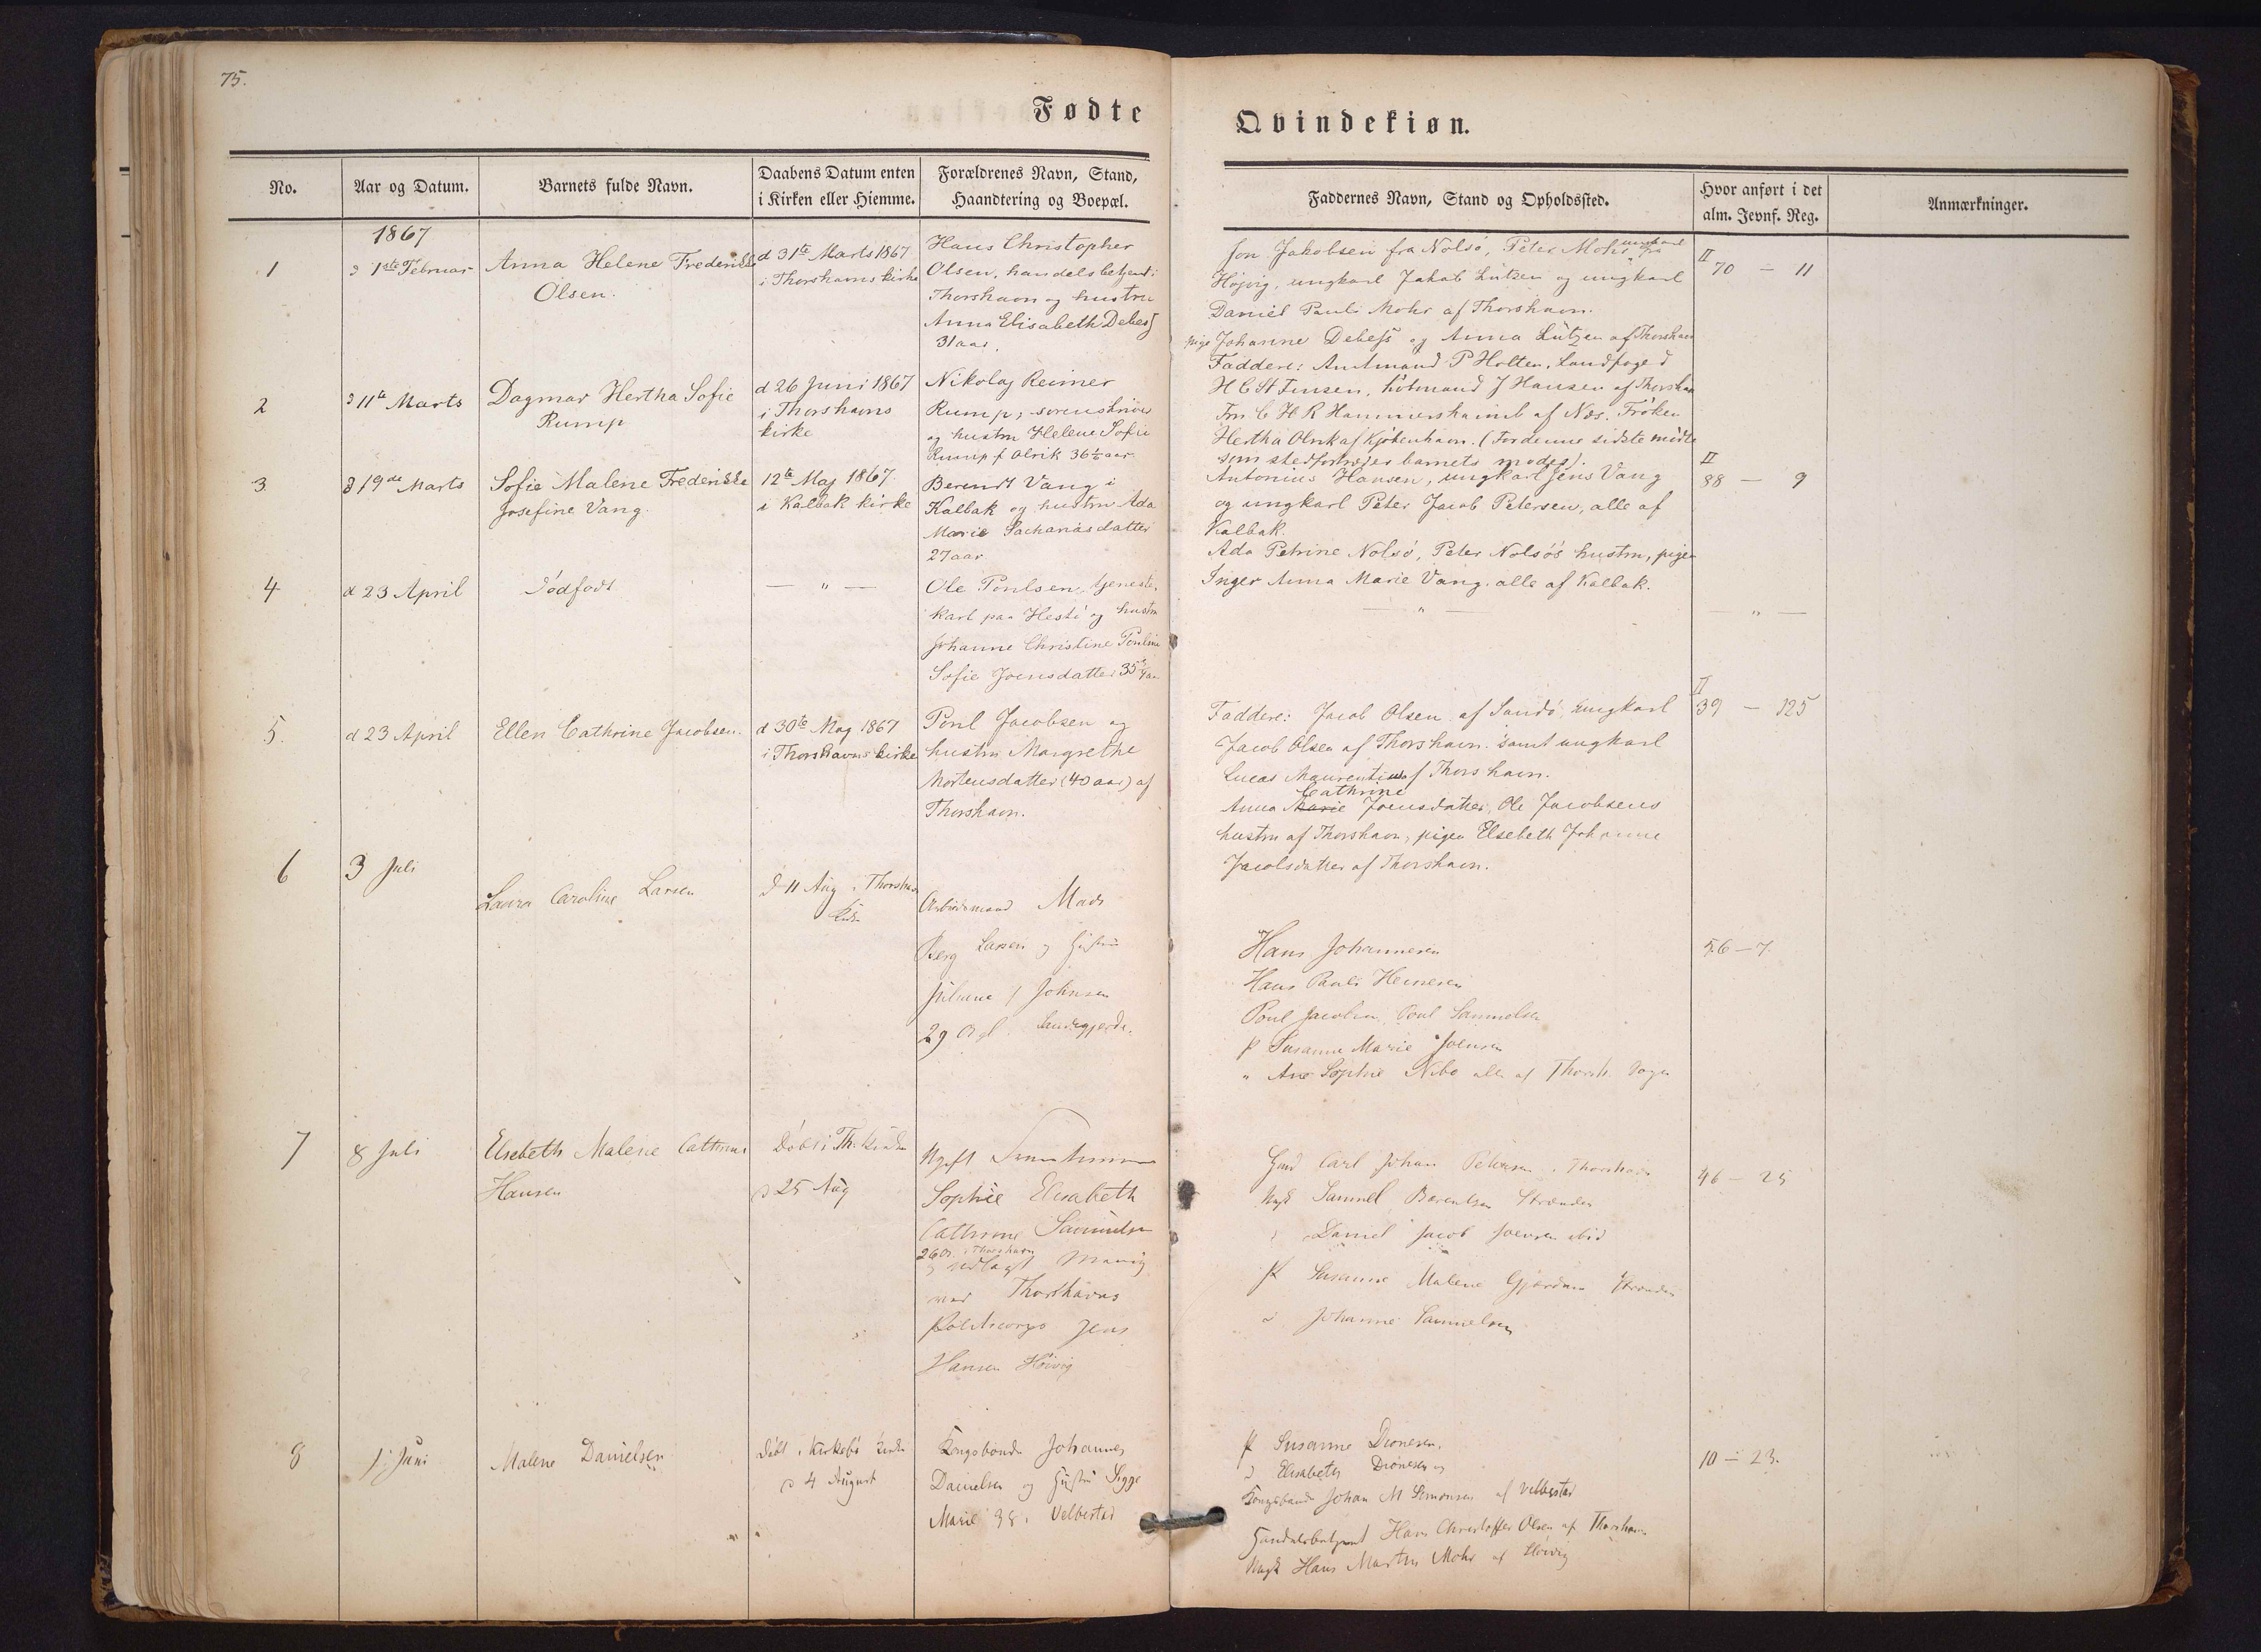 75.
Fødte
Qvindekiøn.
No.
Aar og Datum.
Barnets fulde Navn.
Daabens Datum enten
i Kirken eller Hiemme.
Forældrenes Navn, Stand,
Haandtering og Boepæl.
Faddernes Navn, Stand og Opholdssted.
Hvor anført i det
alm. Jevnf. Reg.
Anmærkninger.
1867
1
d 1ste Februar
Anna Helene Frederikke
Olsen.
d 31te Marts 1867
i Thorshavns kirke
Hans Christopher
Olsen, handelsbetjent i
Thorshavn og hustru
Anna Elisabeth Debes
31 aar.
Jon Jakobsen fra Nolsö, Peter Mohr ungkarl fra
Höjvig, ungkarl Jakob Lützen og ungkarl
Daniel Pauli Mohr af Thorshavn.
pige Johanne Debess og Anna Lützen af Thorshavn
II
70 — 11
2
d 11te Marts
Dagmar Hertha Sofie
Rump
d 26 Juni 1867
i Thorshavns
kirke
Nikolaj Reimer
Rump, sorenskriver
og hustru Helene Sofie
Rump f. Olrik 36½ aar
Faddere: Amtmand P Holten, Landfoged
H C St Finsen, J Hansen af Thorshavn
Fru C H R Hammershaimb af Næs. Fröken
Hertha Olrik af Kjöbenhavn. (For denne sidste mödte
som stedfortræder barnets moder).
3
d 19de Marts
Sofie Malene Frederikke
Josefine Vang.
12te Maj 1867.
i Kalbak kirke
Berendt Vang i
Kalbak og hustru Ada
Marie Sachariasdatter
27 aar.
Antonius Hansen, ungkarl Jens Vang
og ungkarl Peter Jacob Petersen, alle af
Kalbak.
Ada Petrine Nolsö, Peter Nolsö's hustru, pigen
Inger Anna Marie Vang. alle af Kalbak.
II
88 — 9
4
d 23 April
Dödfödt
— " —
Ole Poulsen, tjeneste-
karl paa Hestö og hustru
Johanne Christine Pouline
Sofie Joensdatter 35
— " —
— " —
5.
d 23 April
Ellen Cathrine Jacobsen.
d 30te Maj 1867
i Thorshavns kirke
Poul Jacobsen og
hustru Margrethe
Mortensdatter (40 aar) af
Thorshavn.
Faddere: Jacob Olsen af Sandö, ungkarl
Jacob Olsen af Thorshavn. samt ungkarl
Lucas Maurentius af Thorshavn.
Cathrine
Anna Marie Joensdatter, Ole Jacobsens
hustru af Thorshavn, pigen Elsebeth Johanne
Jacobsdatter af Thorshavn.
II
39 — 125
6
3 Juli
Laura Caroline Larsen
d 11 Aug i Thorshavn
Kirke
Arbeidsmand Mads
Berg Larsen og Hustru
Juliane f Johnsen
29 Aar Sandegjerde.
Hans Johannesen
Hans Pauli Heinesen
Poul Jacobsen, Poul Samuelsen
P Susanne Marie Joensen
" Ane Sophie Nibo alle af Thorsh. Sogn
56 — 7.
7
8 Juli
Elsebeth Malene Cathrine
Hansen
Döbt i Th. Kirke
d 25 Aug
Ugift
Sophie Elisabeth
Cathrine Samuelsen
26 A. i Thorshavn
og udlagt
Thorshavns
Jens
Hansen Höivig
Carl Johan Petersen i Thorshavn
Ungk Samuel Berentsen Strænder
" Daniel Jacob Joensen ibid
P Susanne Malene Strænder
" Johanne Samuelsen
46 — 25
8
1. Juni
Malene Danielsen
Döbt i Kirkebö Kirke
d 4 August
Kongsbonde Johannes
Danielsen og Hustru Sigge
Marie 38. Velbestad
P Susanne Dionesen,
" Elisabeth Dionesen og
Kongsbonde Johan M Simonsen af Velbestad
Handelsbetjent Hans Christoffer Olsen af Thorshavn
Ungk Hans Martin Mohr af Höivig
10 — 23.